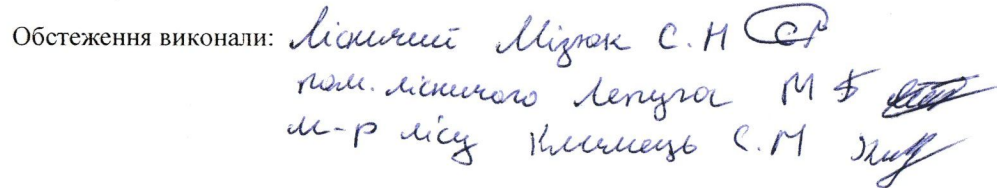 Обстеження виконали: Лісничий Мізюк С.Н
пом. лісничого Лепуга М Б
м-р лісу Климець С.М